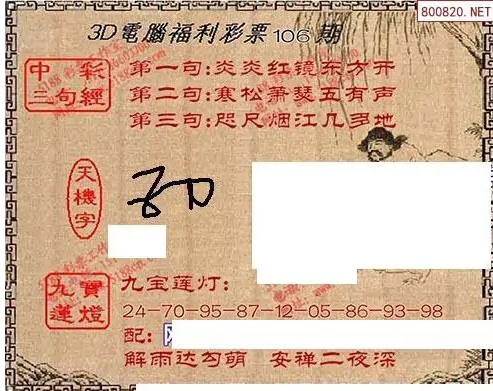 800820.NET
3D電腦福利彩票106期
中彩
三句經
第一句:炎炎红镜东方开
第二句:寒松萧瑟五有声
第三句:咫尺烟江几多地
天機字
九寶蓮燈
九宝莲灯:
24-70-95-87-12-05-86-93-98
配:
解雨达勾萌 安禅二夜深